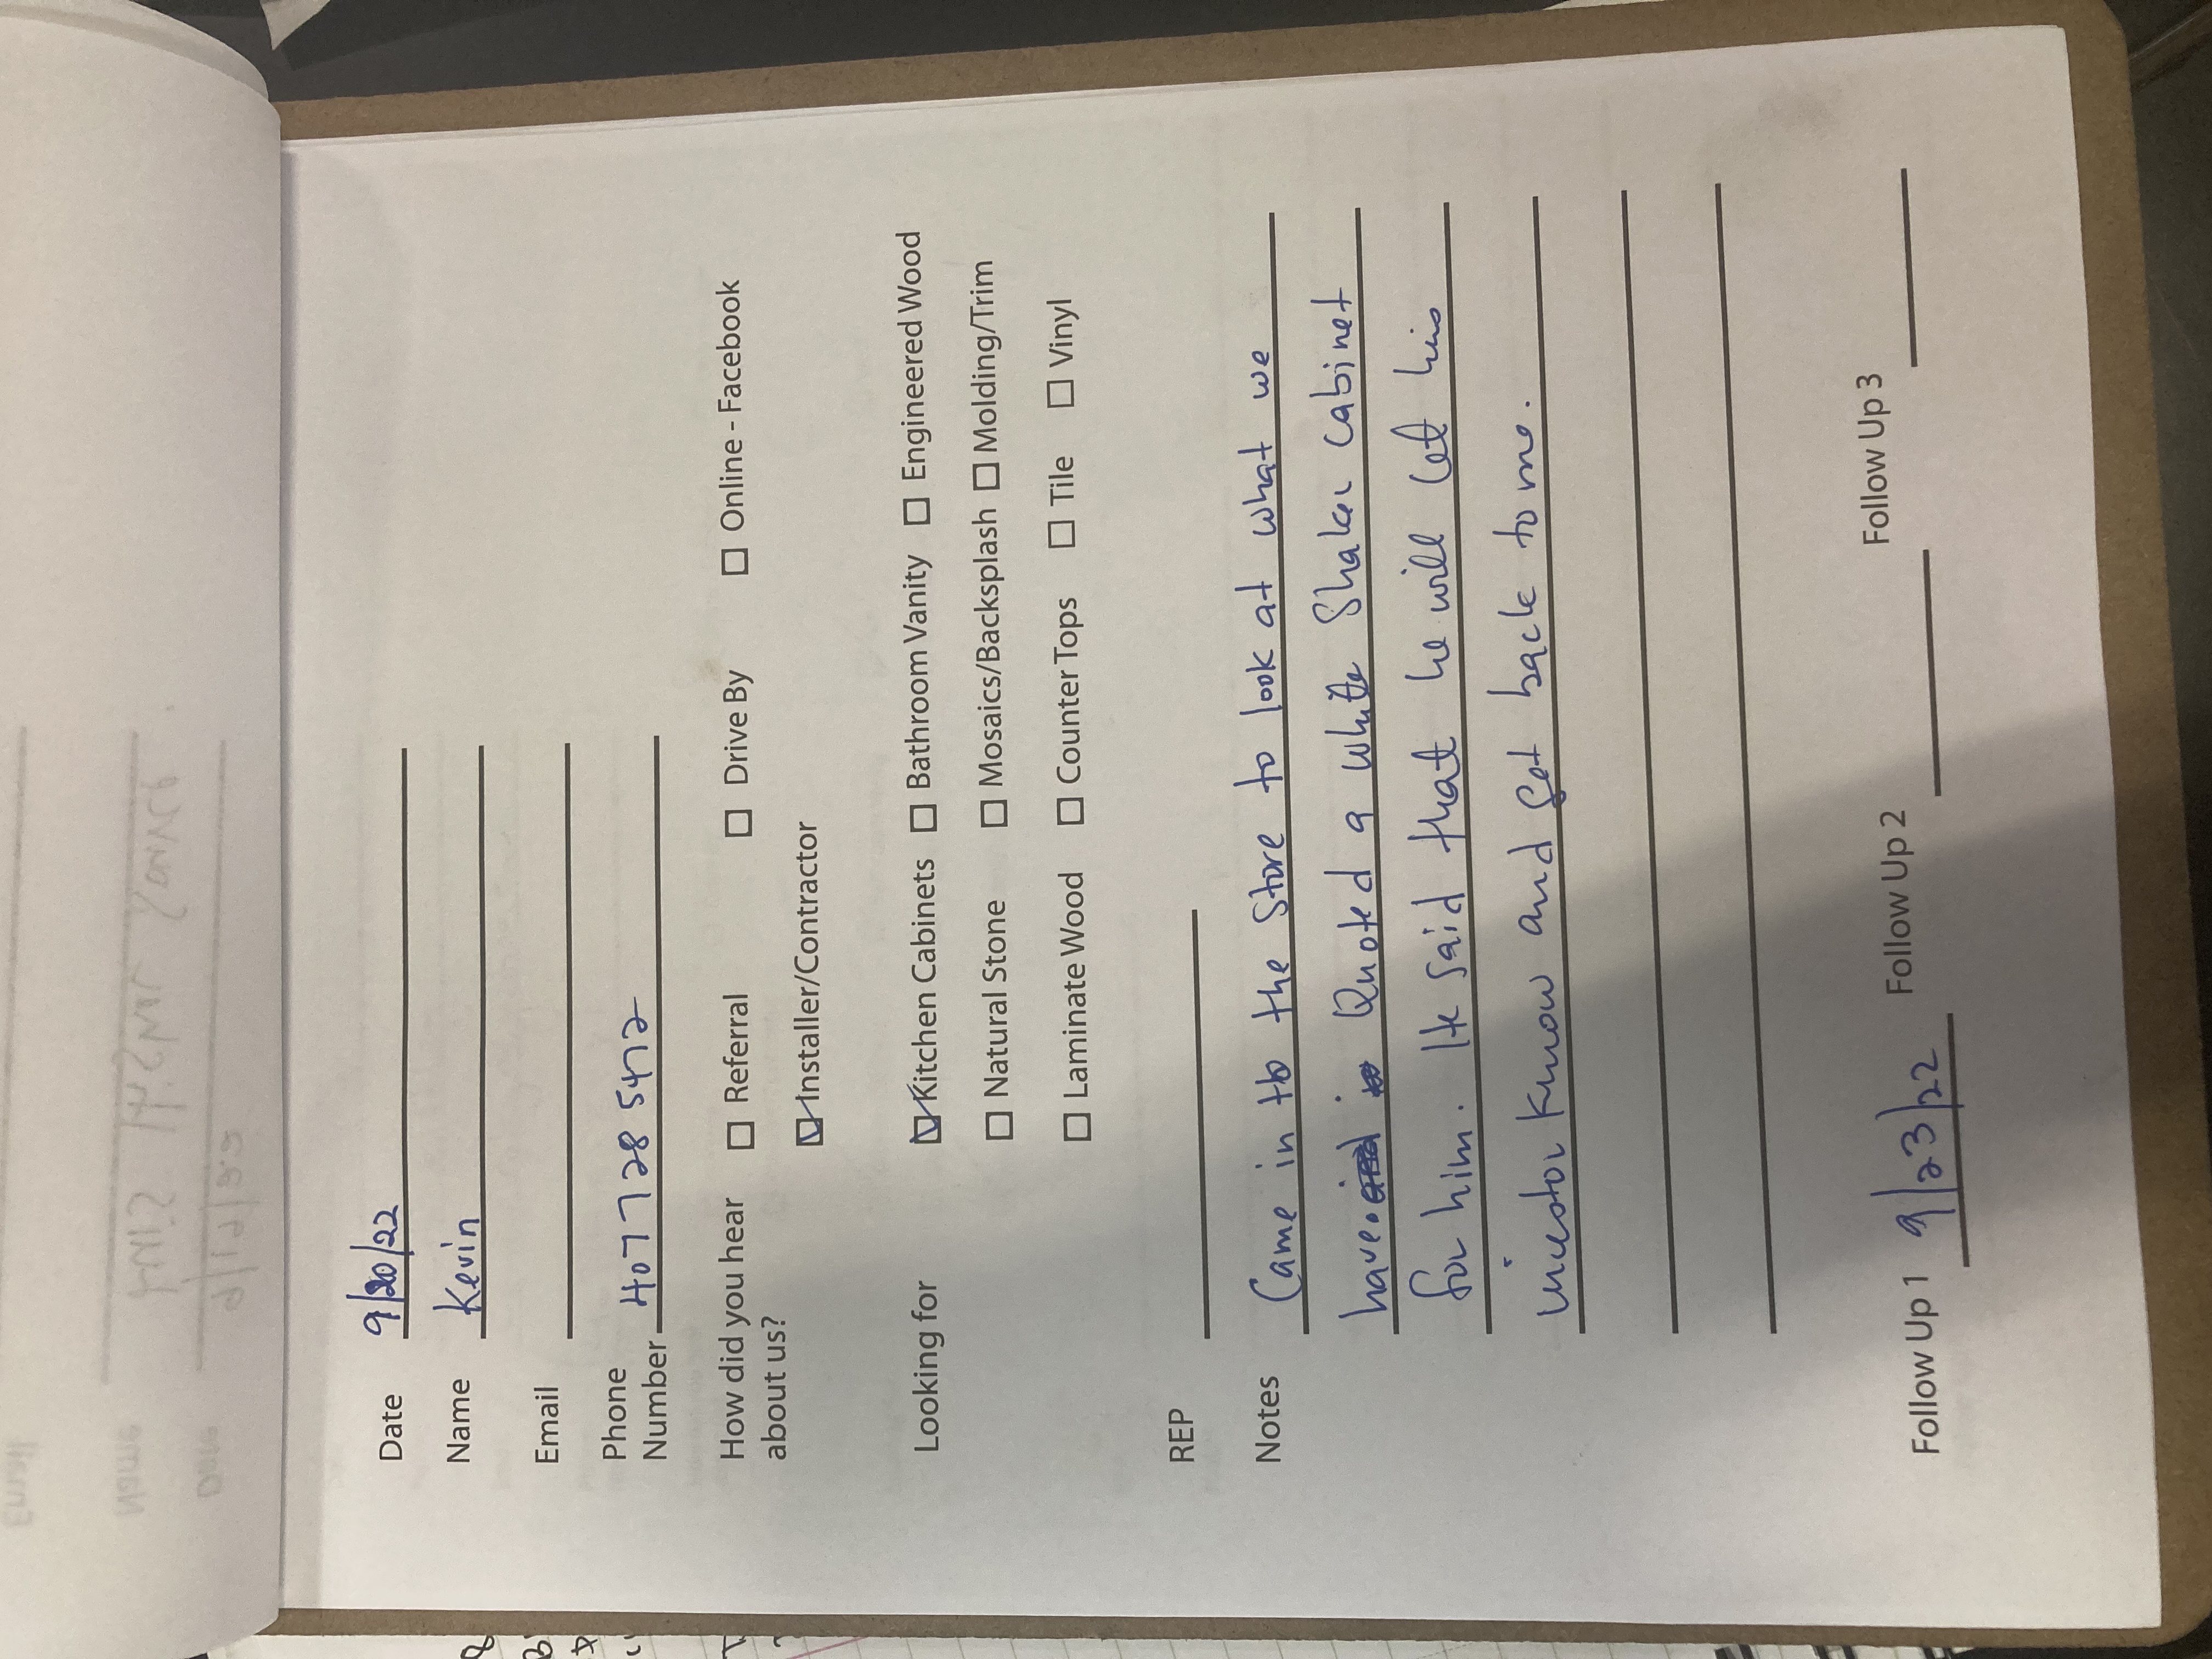 Date 9/20/22
Name Kevin
Email
Phone
Number 407 728 5472
How did you hear ☐ Referral ☐ Drive By ☐ Online - Facebook
about us? ☑ Installer/Contractor
Looking for ☑ Kitchen Cabinets ☐ Bathroom Vanity ☐ Engineered Wood
☐ Natural Stone ☐ Mosaics/Backsplash ☐ Molding/Trim
☐ Laminate Wood ☐ Counter Tops ☐ Tile ☐ Vinyl
REP
Notes Came in to the Store to look at what we
have. Quoted a white Shaker Cabinet
for him. He said that he will let his
investor Know and Get back to me.
Follow Up 1 9/23/22 Follow Up 2 Follow Up 3